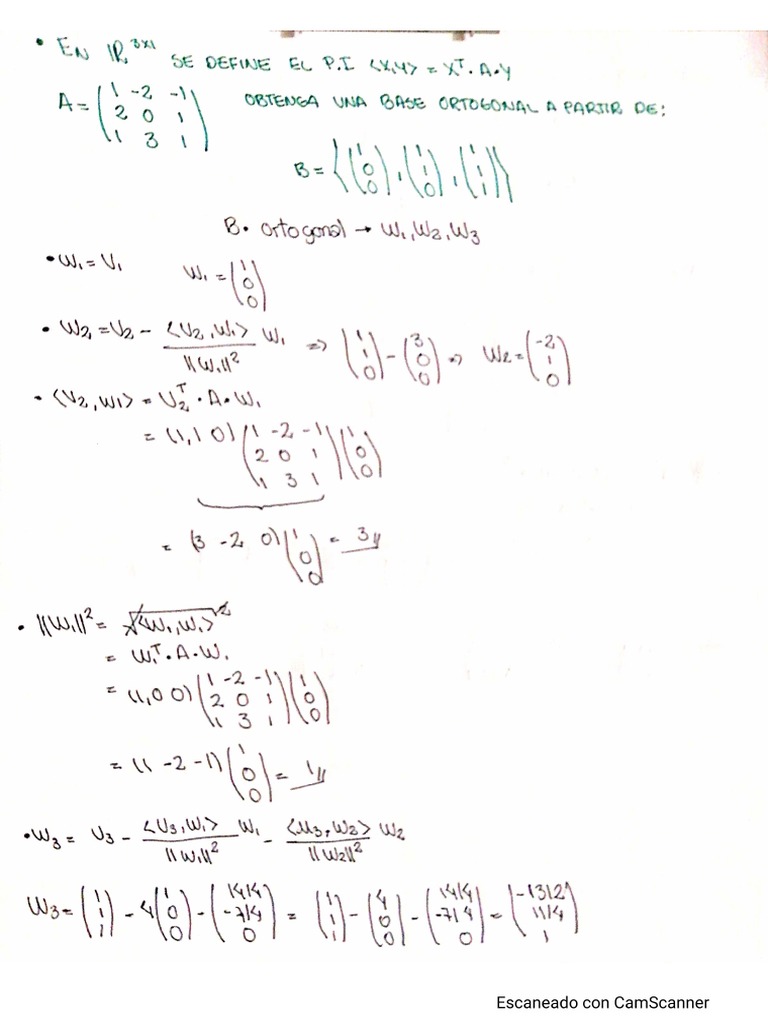 • EN ℝ³ˣ¹ SE DEFINE EL P.I ⟨X,Y⟩ = Xᵀ·A·Y
A = (1 -2 -1; 2 0 1; 1 3 1) OBTENGA UNA BASE ORTOGONAL A PARTIR DE:
B = ⟨(1; 0; 0), (1; 1; 0), (1; 1; 1)⟩
B. ortogonal → W₁, W₂, W₃
• W₁ = V₁ W₁ = (1; 0; 0)
• W₂ = V₂ - ⟨V₂, W₁⟩/||W₁||² W₁ => (1; 1; 0) - (3; 0; 0) => W₂ = (-2; 1; 0)
• ⟨V₂, W₁⟩ = V₂ᵀ·A·W₁
= (1, 1 0) (1 -2 -1; 2 0 1; 1 3 1) (1; 0; 0)
= (3 -2 0) (1; 0; 0) = 3//
• ||W₁||² = √⟨W₁, W₁⟩²
= W₁ᵀ·A·W₁
= (1, 0 0) (1 -2 -1; 2 0 1; 1 3 1) (1; 0; 0)
= (1 -2 -1) (1; 0; 0) = 1//
• W₃ = V₃ - ⟨V₃, W₁⟩/||W₁||² W₁ - ⟨V₃, W₂⟩/||W₂||² W₂
W₃ = (1; 1; 1) - 4(1; 0; 0) - (14/4; -7/4; 0) = (1; 1; 1) - (4; 0; 0) - (14/4; -7/4; 0) = (-13/2; 11/4; 1)
Escaneado con CamScanner